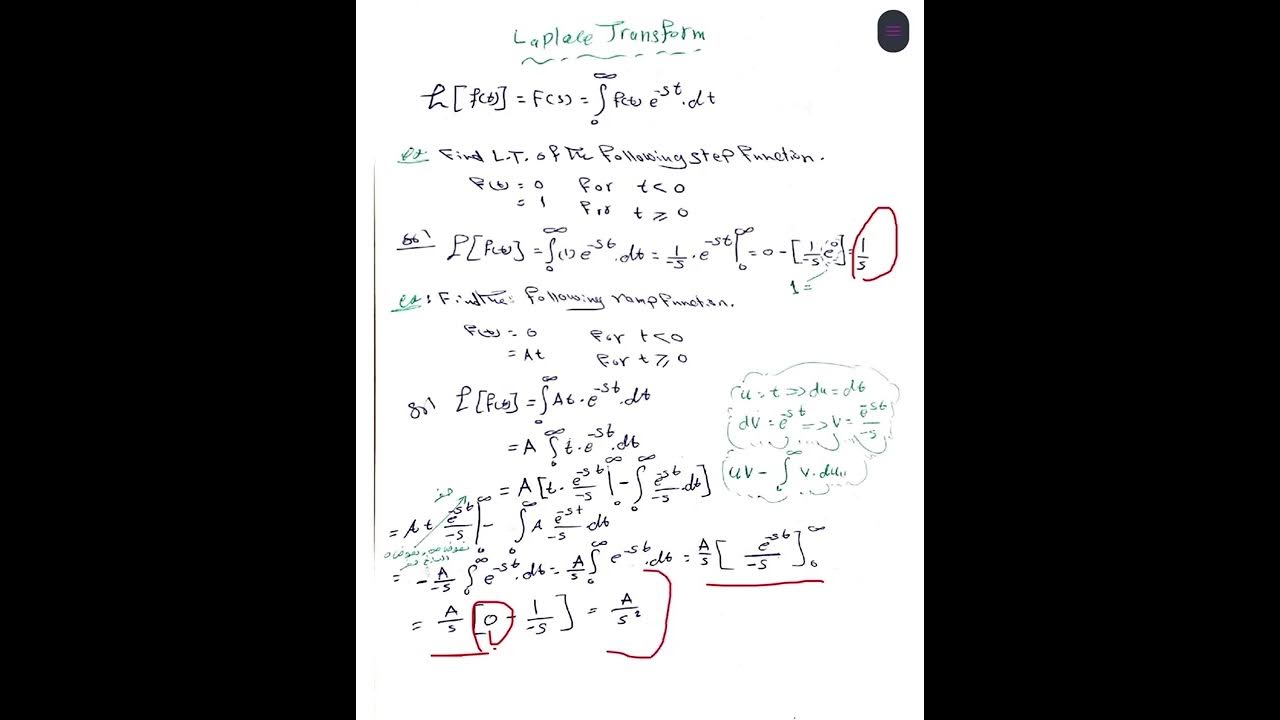 Laplace Transform
ℒ[f(t)] = F(s) = ∫₀^∞ f(t) e^-st . dt
ex Find L.T. of the following step function.
f(t) = 0 for t < 0
= 1 for t ≥ 0
sol ℒ[f(t)] = ∫₀^∞ (1) e^-st . dt = 1/-s . e^-st |₀^∞ = 0 - [1/-s e^0] = 1/s
1 =
ex: Find the: following ramp function.
f(t) = 0 for t < 0
= At for t ≥ 0
sol ℒ[f(t)] = ∫₀^∞ At . e^-st . dt
u = t => du = dt
dV = e^-st => V = e^-st/-s
= A ∫₀^∞ t . e^-st . dt
uV - ∫₀^∞ V . du
= A [t . e^-st/-s |₀^∞ - ∫₀^∞ e^-st/-s . dt]
صفر
= At e^-st/-s |₀^∞ - ∫₀^∞ A e^-st/-s dt
= -A/-s ∫₀^∞ e^-st . dt = A/s ∫₀^∞ e^-st . dt = A/s [e^-st/-s]₀^∞
= A/s [0 - 1/-s] = A/s²